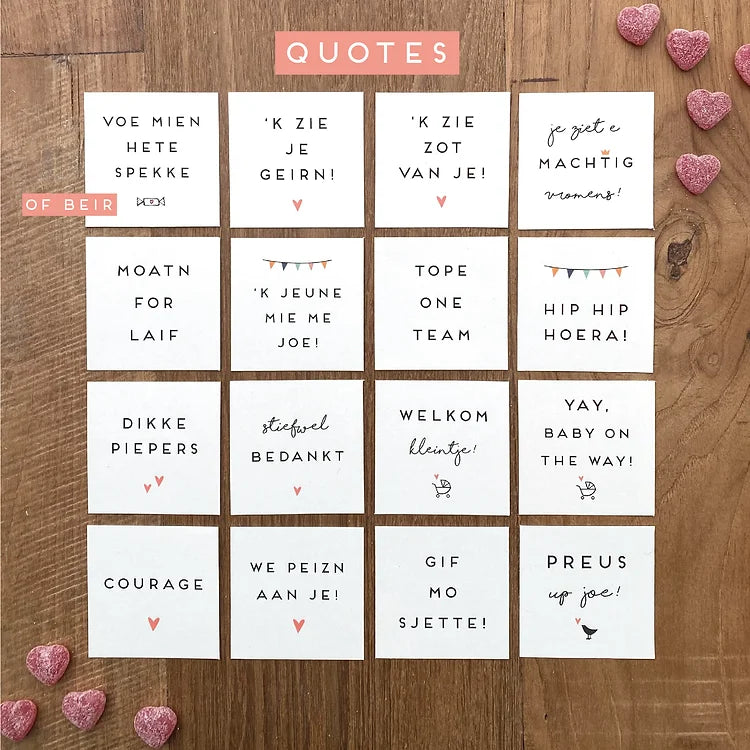 QUOTES
VOE MIEN
HETE
SPEKKE
OF BEIR
'K ZIE
JE
GEIRN!
'K ZIE
ZOT
VAN JE!
je ziet e
MACHTIG
vromens!
MOATN
FOR
LAIF
'K JEUNE
MIE ME
JOE!
TOPE
ONE
TEAM
HIP HIP
HOERA!
DIKKE
PIEPERS
stiefwel
BEDANKT
WELKOM
kleintje!
YAY,
BABY ON
THE WAY!
COURAGE
WE PEIZN
AAN JE!
GIF
MO
SJETTE!
PREUS
up joe!